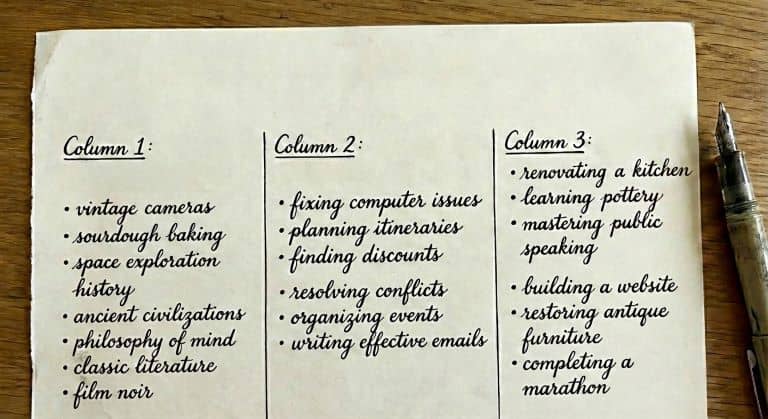 Column 1:
• vintage cameras
• sourdough baking
• space exploration
history
• ancient civilizations
• philosophy of mind
• classic literature
• film noir
Column 2:
• fixing computer issues
• planning itineraries
• finding discounts
• resolving conflicts
• organizing events
• writing effective emails
Column 3:
• renovating a kitchen
• learning pottery
• mastering public
speaking
• building a website
• restoring antique
furniture
• completing a
marathon